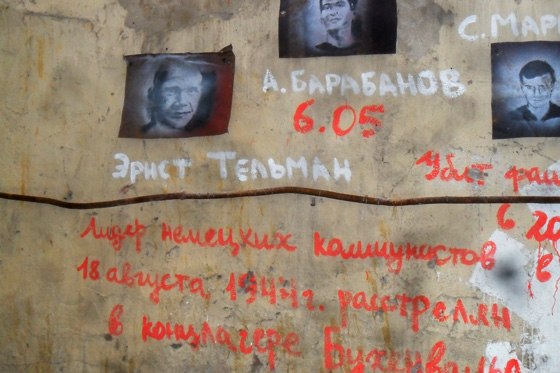 С. МАР
А. БАРАБАНОВ
6.05
ЭРНСТ ТЕЛЬМАН
Убит
Лидер немецких коммунистов
18 августа 1944 г. расстрелян
в концлагере Бухенвальд